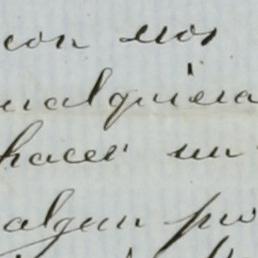 con esos
ualquiera
hacer un
algun po